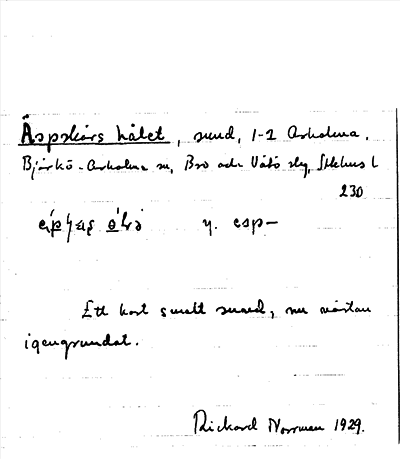 Äspskärs hålet, sund, 1-2 Arholma.
Björkö-Arholma sn, Bro och Vätö slg, Sthlms l
230
y. esp-
Ett kort smalt sund, nu nästan
igengrundat.
Richard Norrman 1929.